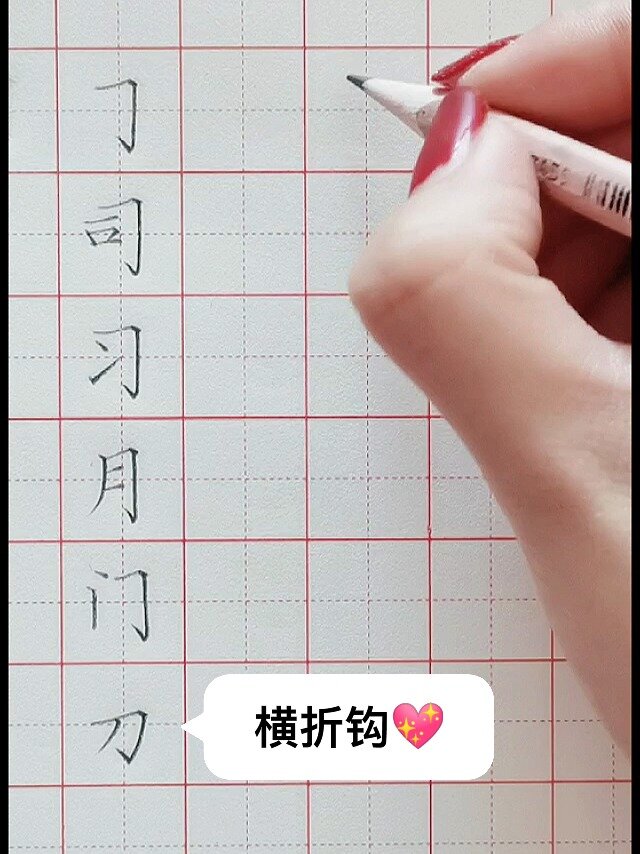 𠃌
司
习
月
门
刀
横折钩💖